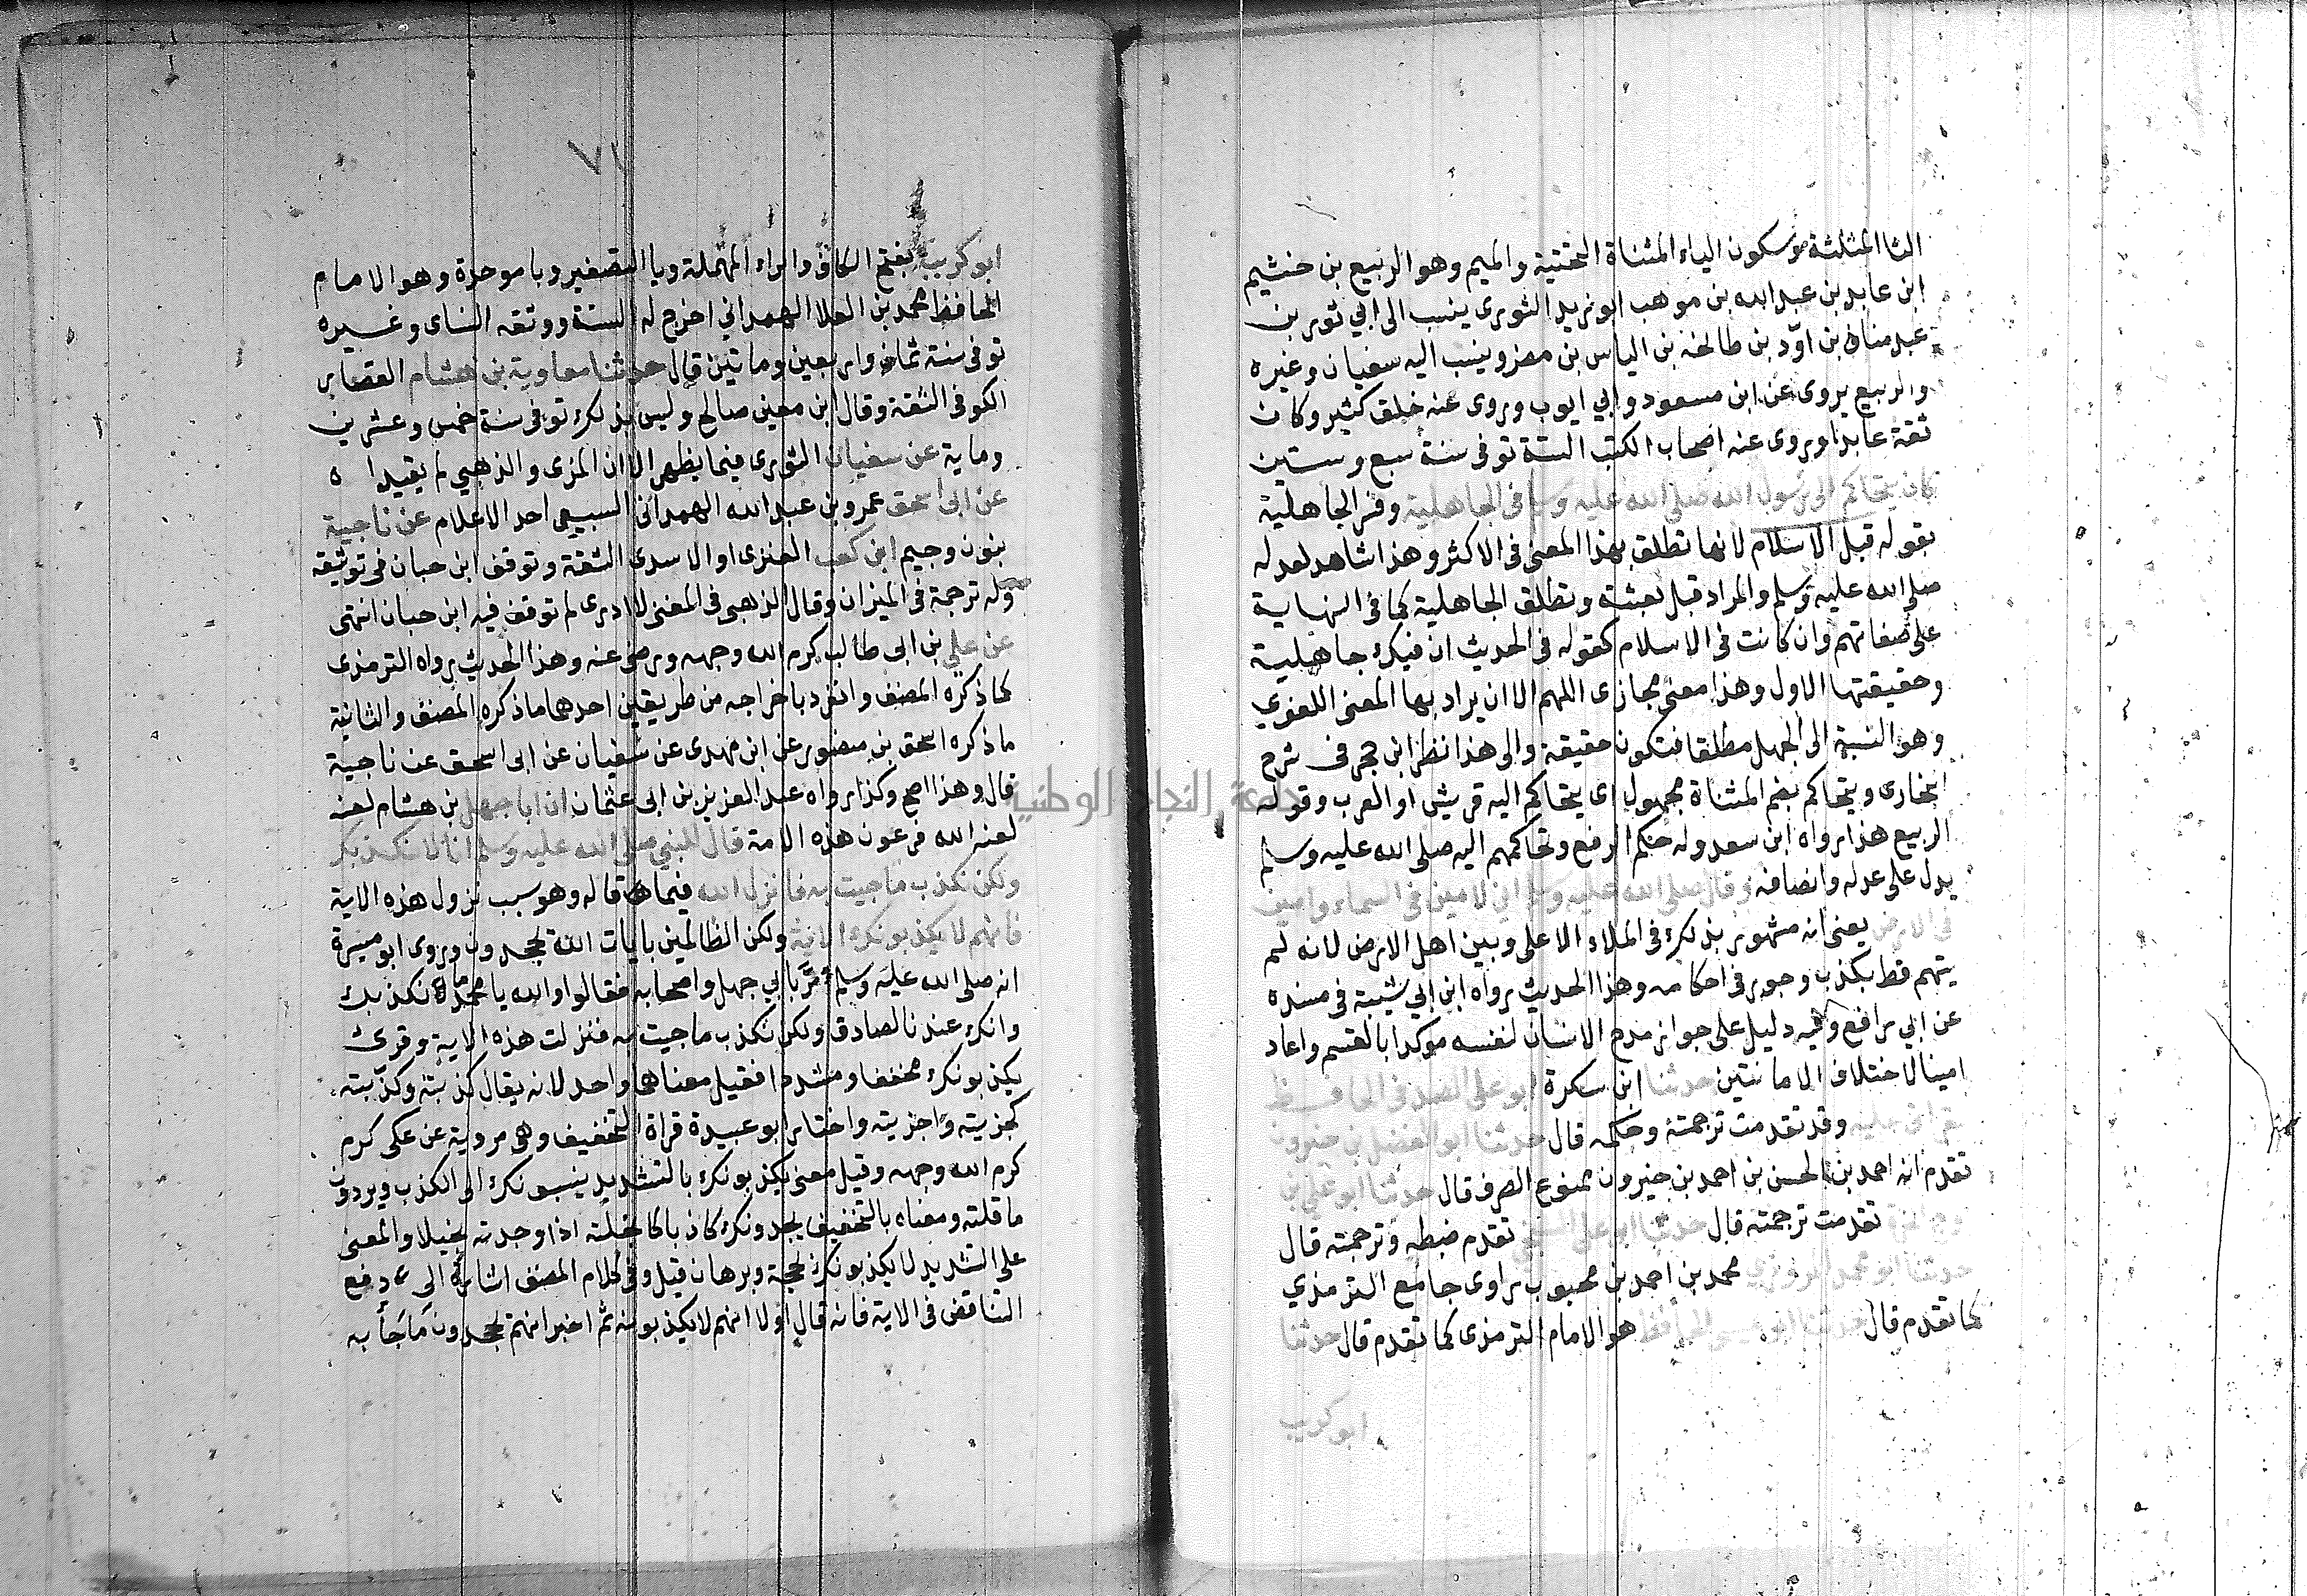 الثا المثلثة وسكون الياء المثناة التحتية والميم وهو الربيع بن خشيم
ابن عابد بن عبد الله بن موهب ابو نريد الثورى ينسب الى ابي ثور بن
عبد مناف بن اوّد بن طالخه بن الياس بن مضر وينسب اليه سفيان وغيره
والربيع يروى عن ابن مسعود وابي ايوب وروى عنه خلق كثير وكان
ثقة عابدا وروى عنه اصحاب الكتب الستة توفى سنة سبع وستين
كان يتحاكم الى رسول الله صلى الله عليه وسلم فى الجاهلية وفسر الجاهلية
بقوله قبل الاسلام لانها تطلق بهذا المعنى فى الاكثر وهذا شاهد لعدله
صلى الله عليه وسلم والمراد قبل بعثته وتطلق الجاهلية كما فى النهاية
على صفاتهم وان كانت فى الاسلام كقوله فى الحديث ان فيك جاهلية
وحقيقتها الاول وهذا معنى مجازى اللهم الا ان يراد بها المعنى اللغوي
وهو النسبة الى الجهل مطلقا فتكون حقيقة والى هذا نظر ابن حجر فى شرح
البخارى ويتحاكم بضم المثناة مجهول اى يتحاكم اليه قريش او العرب وقوله
الربيع هذا رواه ابن سعد وله حكم الرفع وتحاكمهم اليه صلى الله عليه وسلم
يدل على عدله وانصافه وقال صلى الله عليه وسلم اني لامين فى السماء وامين
فى الارض يعنى انه مشهور بذلك فى الملاء الاعلى وبين اهل الارض لانه لم
يتهم قط بكذب وجور فى احكامه وهذا الحديث رواه ابن ابي شيبة فى مسنده
عن ابي رافع وفيه دليل على جواز مدح الانسان لنفسه موكدا بالقسم واعاد
امينا لاختلاف الامانتين حدثنا ابن سكرة ابو على الصدفى الحافظ
بقراتى عليه وقد تقدمت ترجمته وحكمه قال حدثنا ابو الفضل بن خيرون
تقدم انه احمد بن الحسن بن احمد بن خيرون ممنوع الصرف قال حدثنا ابو على بن
زوج الحرة تقدمت ترجمته قال حدثنا ابو على السنجي تقدم ضبطه وترجمته قال
حدثنا ابو محمد المروزى محمد بن احمد بن محبوب راوى جامع الترمذي
كما تقدم قال حدثنا ابو عيسى الحافظ هو الامام الترمذى كما تقدم قال حدثنا
ابو كريب
٧١
ابو كريب بفتح الكاف والراء المهملة ويا التصغير وبا موحدة وهو الامام
الحافظ محمد بن العلا الهمداني اخرج له الستة ووثقه النساى وغيره
توفى سنة ثمان واربعين ومائتين قال حدثنا معاوية بن هشام القصار
الكوفى الثقة وقال ابن معين صالح وليس بذلك توفى سنة خمس وعشرين
وماية عن سفيان الثورى فيما يظهر الا ان المزى والذهبي لم يقيدا ه
عن ابى اسحق عمرو بن عبد الله الهمدانى السبيعى احد الاعلام عن ناجية
بنون وجيم ابن كعب العنزى او الاسدى الثقة وتوقف ابن حبان فى توثيقه
وله ترجمة فى الميزان وقال الذهبى فى المغنى لا ادرى لم توقف فيه ابن حبان انتهى
عن علي بن ابى طالب كرم الله وجهه ورضى عنه وهذا الحديث رواه الترمذى
كما ذكره المصنف وانفرد باخراجه من طريقين احدهما ما ذكره المصنف والثانية
ما ذكره اسحق بن منصور عن ابن مهدى عن سفيان عن ابى اسحق عن ناجية
قال وهذا اصح وكذا رواه عبد العزيز بن ابى عثمان ان ابا جهل بن هشام لعنه
لعنه الله فرعون هذه الامة قال للنبي صلى الله عليه وسلم انا لا نكذبك
ولكن نكذب ما جيت به فانزل الله فيما قاله وهو سبب نزول هذه الاية
فانهم لا يكذبونك الاية ولكن الظالمين بايات الله يجحدون وروى ابو ميسرة
انه صلى الله عليه وسلم مرّ بابي جهل واصحابه فقالوا والله يا محمد ما نكذبك
وانك عندنا لصادق ولكن نكذب ما جيت به فنزلت هذه الاية وقرى
يكذبونك مخففا ومشددا فقيل معناهما واحد لانه يقال كذبته وكذّبته
كجزيته واجزيته واختار ابو عبيدة قراة التخفيف وهى مروية عن على كرم
كرم الله وجهه وقيل معنى يكذبونك بالتشديد ينسبونك الى الكذب ويردون
ما قلته ومعناه بالتخفيف يجدونك كاذبا كابخلته اذا وجدته بخيلا والمعنى
على التشديد لا يكذبونك بحجة وبرهان قيل وفى كلام المصنف اشارة الى دفع
التناقض فى الاية فانه قال اولا انهم لا يكذبونه ثم اخبر انهم يجحدون ما جأ به
جامعة النجاح الوطنية